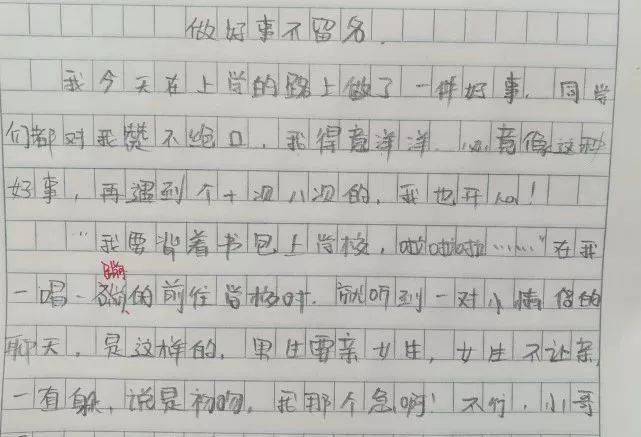 做好事不留名.
我今天在上学的路上做了一件好事.同学
们都对我赞不绝口.我得意洋洋.心竟像这种
好事,再遇到个十次八次的,我也开心!
"我要背着书包上学校,啦啦啦……"在我
一唱一的前往学校时.就听到一对小情侣的
蹦
聊天,是这样的,男生要亲女生,女生不让亲
一有躲,说是初吻,我那个急啊!不行,小哥